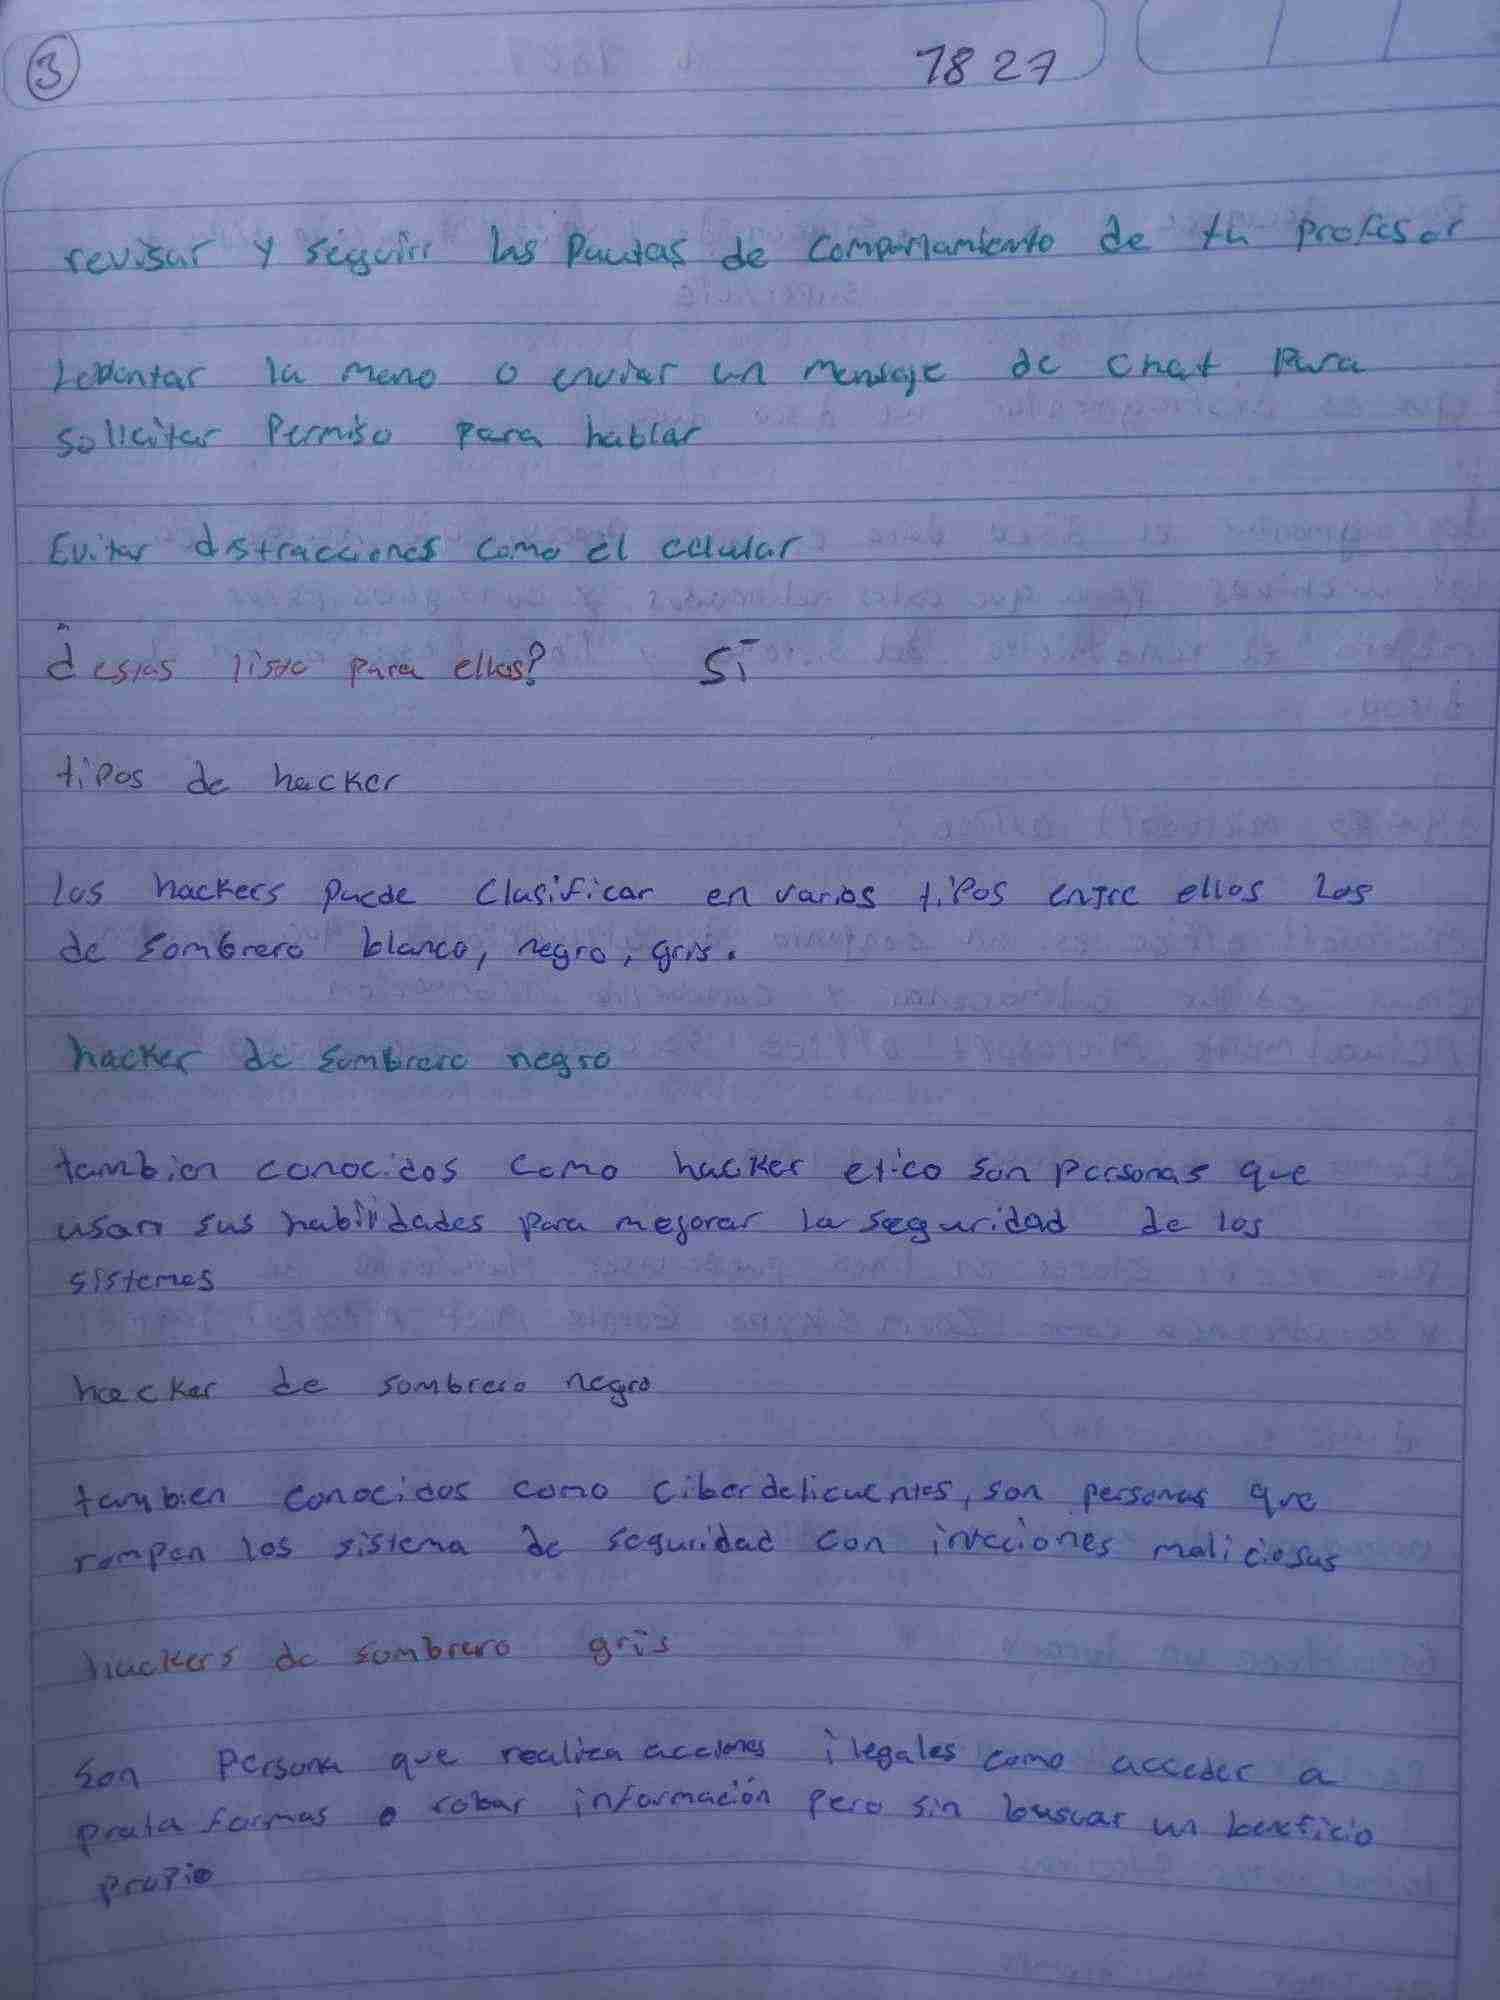 3
1827
revisar y seguir las Pautas de comportamiento de tu profesor
Levantar la mano o enviar un mensaje de chat Para
solicitar Permiso para hablar
Evitar distracciones como el celular
¿estas listo para ellos? SI
tipos de hacker
Los hackers puede Clasificar en varios tipos entre ellos Los
de sombrero blanco, negro, gris.
hacker de sombrero negro
tambien conocidos como hacker etico son personas que
usan sus habilidades para mejorar la seguridad de los
sistemas
hacker de sombrero negro
tambien conocidos como ciberdelicuentes, son personas que
rompen los sistema de seguridad con inteciones maliciosas
hackers de sombrero gris
Son Persona que realiza acciones ilegales como acceder a
prataformas o robar información pero sin buscar un beneficio
propio